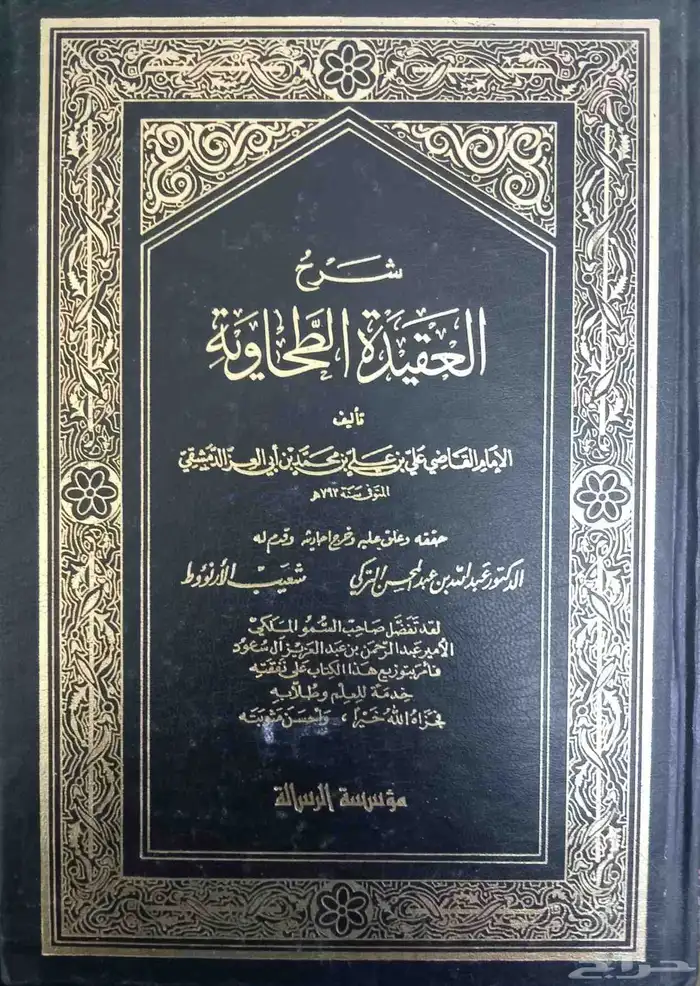 شرح
العقيدة الطحاوية
تأليف
الإمام القاضي علي بن علي بن محمد بن أبي العز الدمشقي
المتوفى سنة ٧٩٢ هـ
حققه وعلق عليه وخرج أحاديثه وقدم له
الدكتور عبد الله بن عبد المحسن التركي شعيب الأرنؤوط
لقد تفضل صاحب السمو الملكي
الأمير عبد الرحمن بن عبد العزيز آل سعود
فأمر بتوزيع هذا الكتاب على نفقته
خدمة للعلم وطلابه
فجزاه الله خيرا، وأحسن مثوبته
مؤسسة الرسالة
حراج